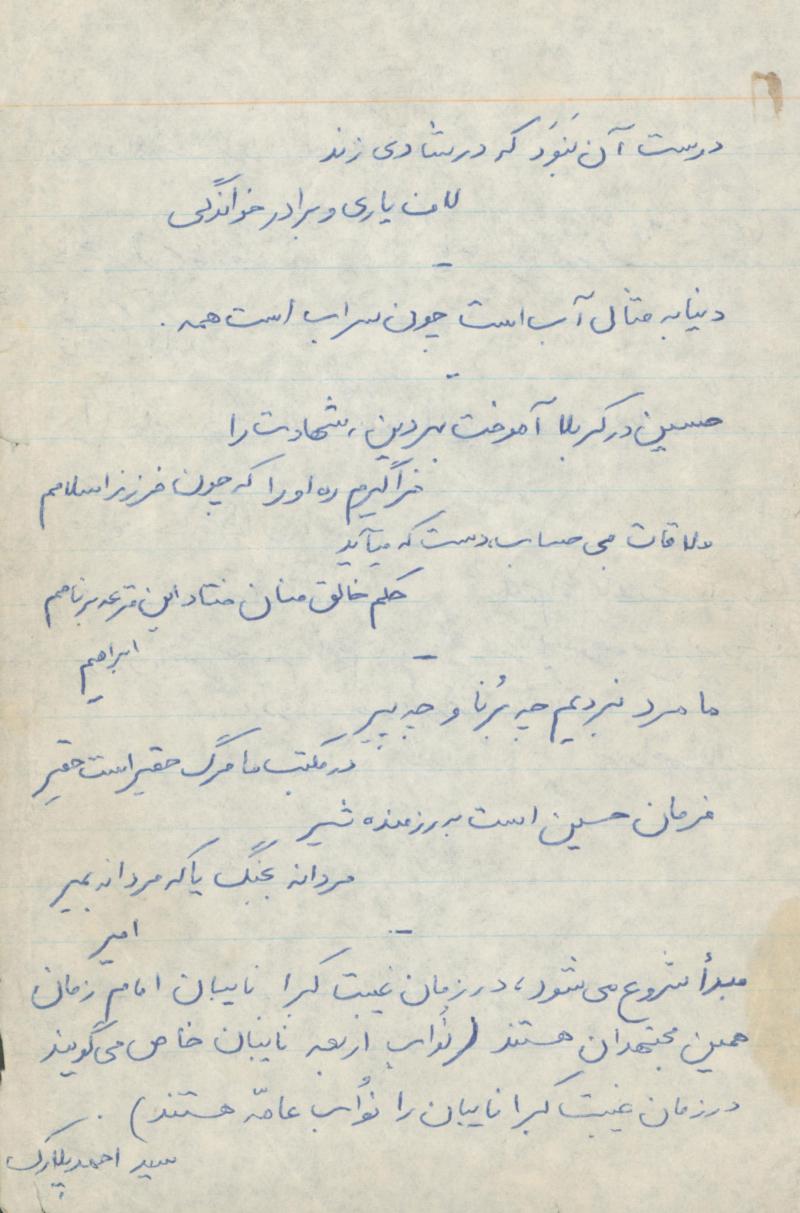 درست آن نَبوَد که در شادی زند
لاف یاری و برادر خواندگی
-
دنیا به مثال آب است چون سراب است همه.
-
حسین در کربلا آموخت بهر دین، شهادت را
فراگیرم ره او را که چون فرزند اسلامم
ملاقات بی حساب، دست که میآید
حکم خالق منان فتاد این قرعه بر نامم
ابراهیم
-
ما مرد نبردیم چه بُرنا و چه پیر
در مکتب ما مرگ حقیر است حقیر
فرمان حسین است به رزمنده شیر
مردانه بجنگ یا که مردانه بمیر
امیر
-
مبدأ شروع می شود، در زمان غیبت کبرا نایبان امام زمان
همین مجتهدان هستند (نُواب اربعه نایبان خاص می گویند
در زمان غیبت کبرا نایبان را نُواب عامّه هستند).
سید احمد پلارک